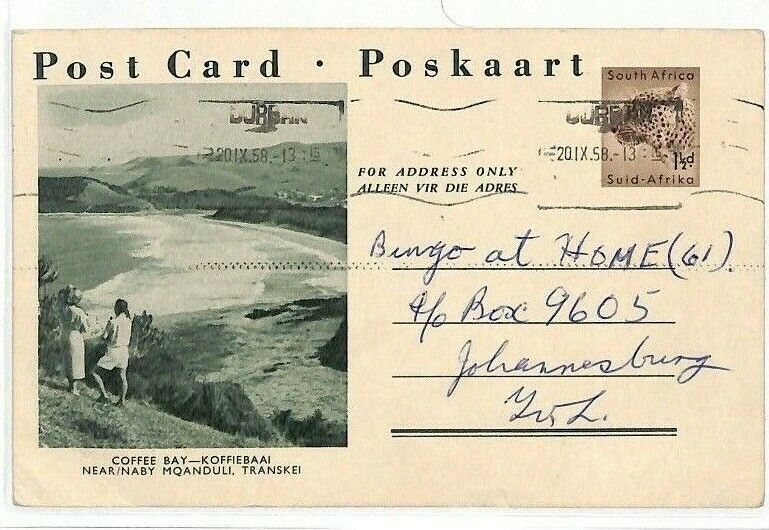 Post Card · Poskaart
South Africa
1½d
Suid-Afrika
DURBAN
20 IX.58.-13
DURBAN
20 IX.58.-13
FOR ADDRESS ONLY
ALLEEN VIR DIE ADRES
Bingo at HOME (61).
c/o Box 9605
Johannesburg
TvL.
COFFEE BAY—KOFFIEBAAI
NEAR/NABY MQANDULI, TRANSKEI